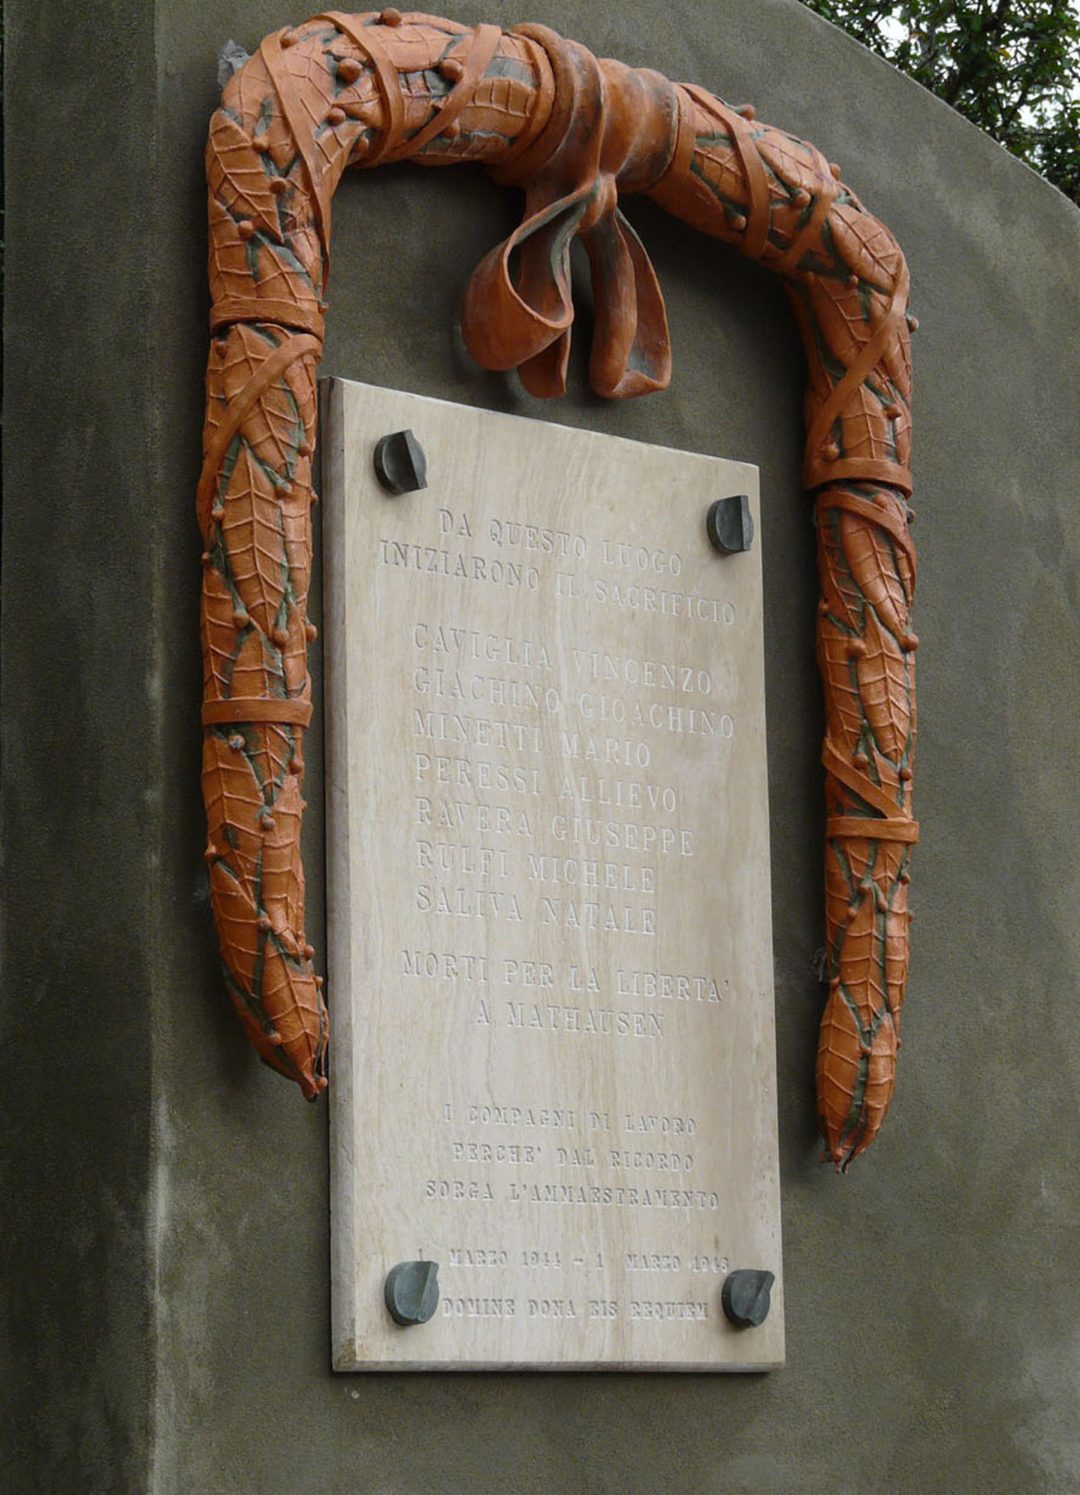 DA QUESTO LUOGO
INIZIARONO IL SACRIFICIO
CAVIGLIA VINCENZO
GIACHINO GIOACHINO
MINETTI MARIO
PERESSI ALLIEVO
RAVERA GIUSEPPE
RULFI MICHELE
SALIVA NATALE
MORTI PER LA LIBERTA'
A MATHAUSEN
I COMPAGNI DI LAVORO
PERCHE' DAL RICORDO
SORGA L'AMMAESTRAMENTO
1 MARZO 1944 - 1 MARZO 1946
DOMINE DONA EIS REQUIEM